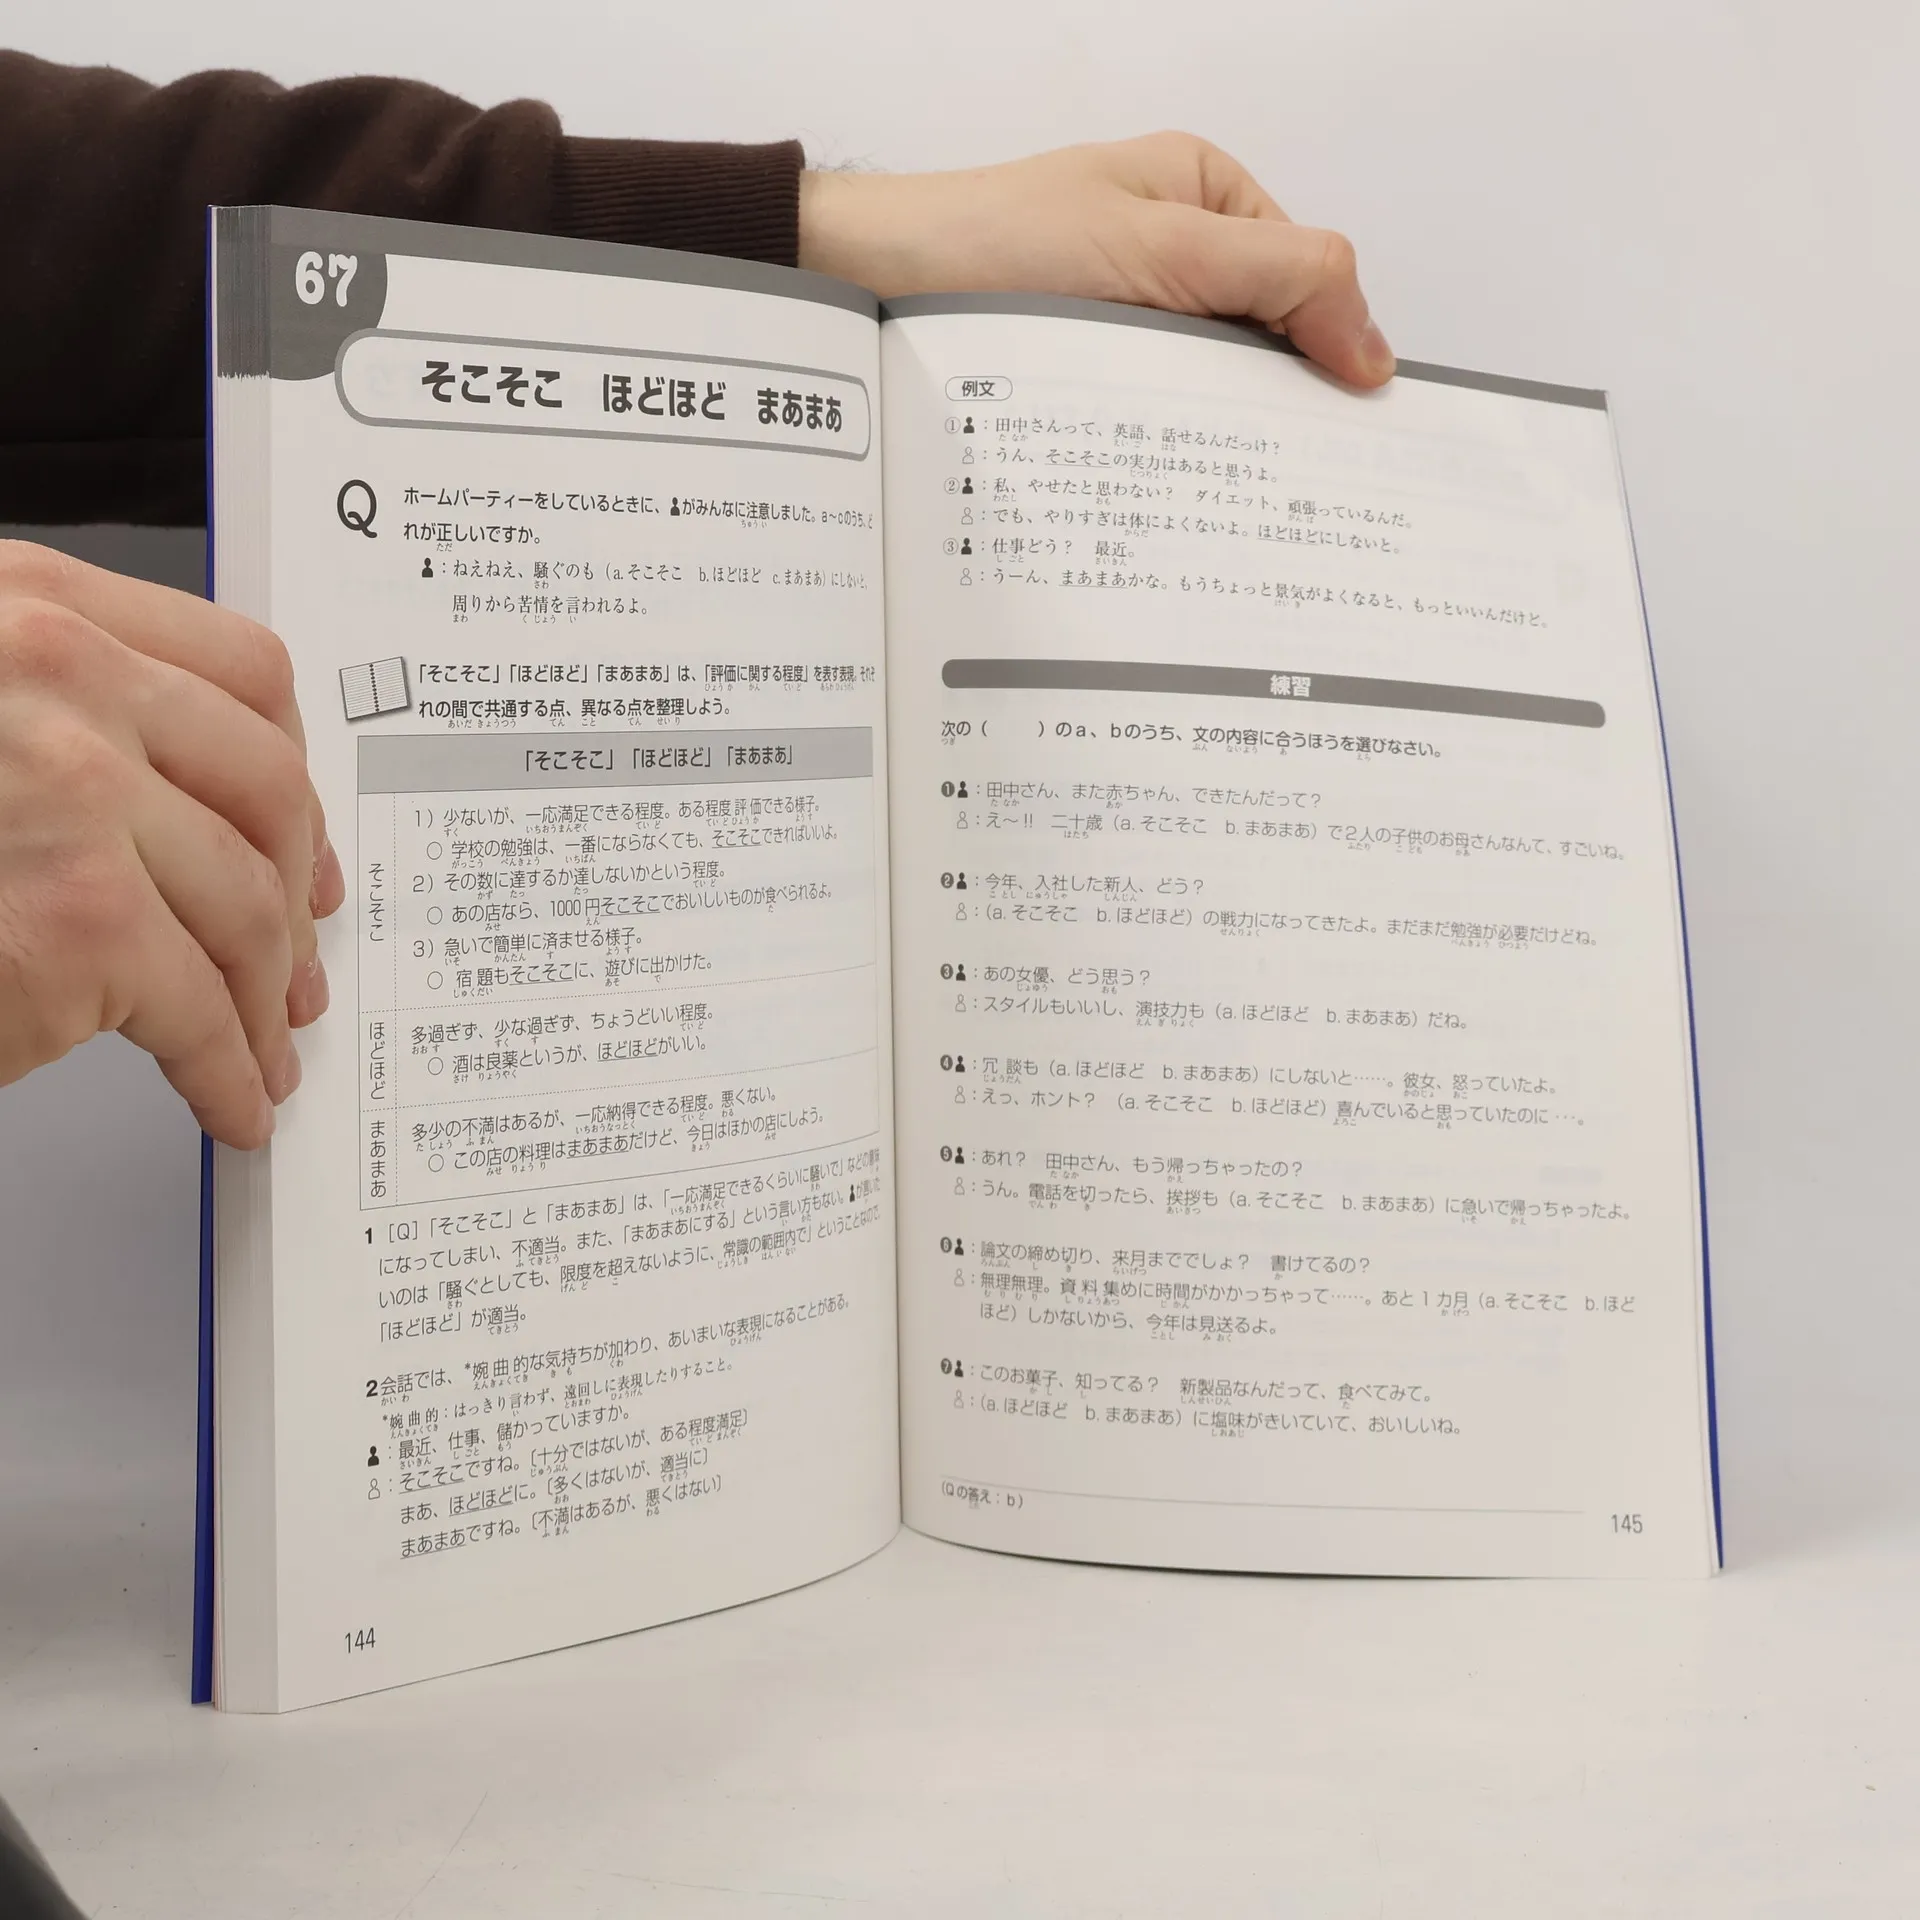 67
そこそこ　ほどほど　まあまあ
Q
ホームパーティーをしているときに、がみんなに注意しました。a～cのうち、ど
れが正しいですか。
：ねえねえ、騒ぐのも（a.そこそこ　b.ほどほど　c.まあまあ）にしないと、
周りから苦情を言われるよ。
「そこそこ」「ほどほど」「まあまあ」は、「評価に関する程度」を表す表現。それぞ
れの間で共通する点、異なる点を整理しよう。
「そこそこ」「ほどほど」「まあまあ」
そこそこ
1）少ないが、一応満足できる程度。ある程度評価できる様子。
○ 学校の勉強は、一番にならなくても、そこそこできればいいよ。
2）その数に達するか達しないかという程度。
○ あの店なら、1000円そこそこでおいしいものが食べられるよ。
3）急いで簡単に済ませる様子。
○ 宿題もそこそこに、遊びに出かけた。
ほどほど
多過ぎず、少な過ぎず、ちょうどいい程度。
○ 酒は良薬というが、ほどほどがいい。
まあまあ
多少の不満はあるが、一応納得できる程度。悪くない。
○ この店の料理はまあまあだけど、今日はほかの店にしよう。
1［Q］「そこそこ」と「まあまあ」は、「一応満足できるくらいに騒いで」などの意味
になってしまい、不適当。また、「まあまあにする」という言い方もない。が言いた
いのは「騒ぐとしても、限度を超えないように、常識の範囲内で」ということなので、
「ほどほど」が適当。
2会話では、*婉曲的な気持ちが加わり、あいまいな表現になることがある。
*婉曲的：はっきり言わず、遠回しに表現したりすること。
：最近、仕事、儲かっていますか。
：そこそこですね。〔十分ではないが、ある程度満足〕
まあ、ほどほどに。〔多くはないが、適当に〕
まあまあですね。〔不満はあるが、悪くはない〕
144
例文
①：田中さんって、英語、話せるんだっけ？
：うん、そこそこの実力はあると思うよ。
②：私、やせたと思わない？　ダイエット、頑張っているんだ。
：でも、やりすぎは体によくないよ。ほどほどにしないと。
③：仕事どう？　最近。
：うーん、まあまあかな。もうちょっと景気がよくなると、もっといいんだけど。
練習
次の（　　）のa、bのうち、文の内容に合うほうを選びなさい。
❶：田中さん、また赤ちゃん、できたんだって？
：え～!!　二十歳（a.そこそこ　b.まあまあ）で2人の子供のお母さんなんて、すごいね。
❷：今年、入社した新人、どう？
：（a.そこそこ　b.ほどほど）の戦力になってきたよ。まだまだ勉強が必要だけどね。
❸：あの女優、どう思う？
：スタイルもいいし、演技力も（a.ほどほど　b.まあまあ）だね。
❹：冗談も（a.ほどほど　b.まあまあ）にしないと……。彼女、怒っていたよ。
：えっ、ホント？　（a.そこそこ　b.ほどほど）喜んでいると思っていたのに…。
❺：あれ？　田中さん、もう帰っちゃったの？
：うん。電話を切ったら、挨拶も（a.そこそこ　b.まあまあ）に急いで帰っちゃったよ。
❻：論文の締め切り、来月まででしょ？　書けてるの？
：無理無理。資料集めに時間がかかっちゃって……。あと1カ月（a.そこそこ　b.ほど
ほど）しかないから、今年は見送るよ。
❼：このお菓子、知ってる？　新製品なんだって、食べてみて。
：（a.ほどほど　b.まあまあ）に塩味がきいていて、おいしいね。
（Qの答え：b）
145